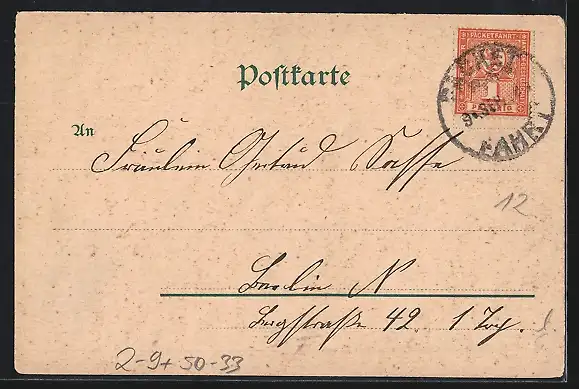 PACKETFAHRT
PFENNIG
PACKET
FAHRT
Postkarte
An
Fräulein Gertrud Sasse
12
Berlin N
Bergstraße 42. 1 Trp.
2-9+ 50-33